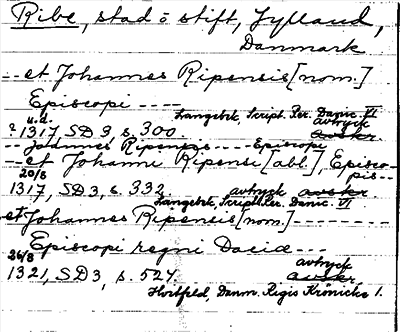 Ribe, stad o stift, Jylland,
Danmark
-- et Johannes Ripensis [nom.]
Episcopi ----
Langebek, Script. Rer. Danic. VI
u.d. avtryck
? 1317, SD 3, s. 300. avskr.
-- Johannes Ripensis ---- Episcopi
-- et Johanni Ripensi [abl.], Episco-
pis --
20/8
1317, SD 3, s. 332. avtryck avskr.
Langebek, Script. Rer. Danic. VI
et Johannes Ripensis [nom.] --------
Episcopi regni Daciæ ---
26/8 avtryck
1321, SD 3, s. 524. avskr.
Hvitfeld, Danm. Regis Krönicke 1.